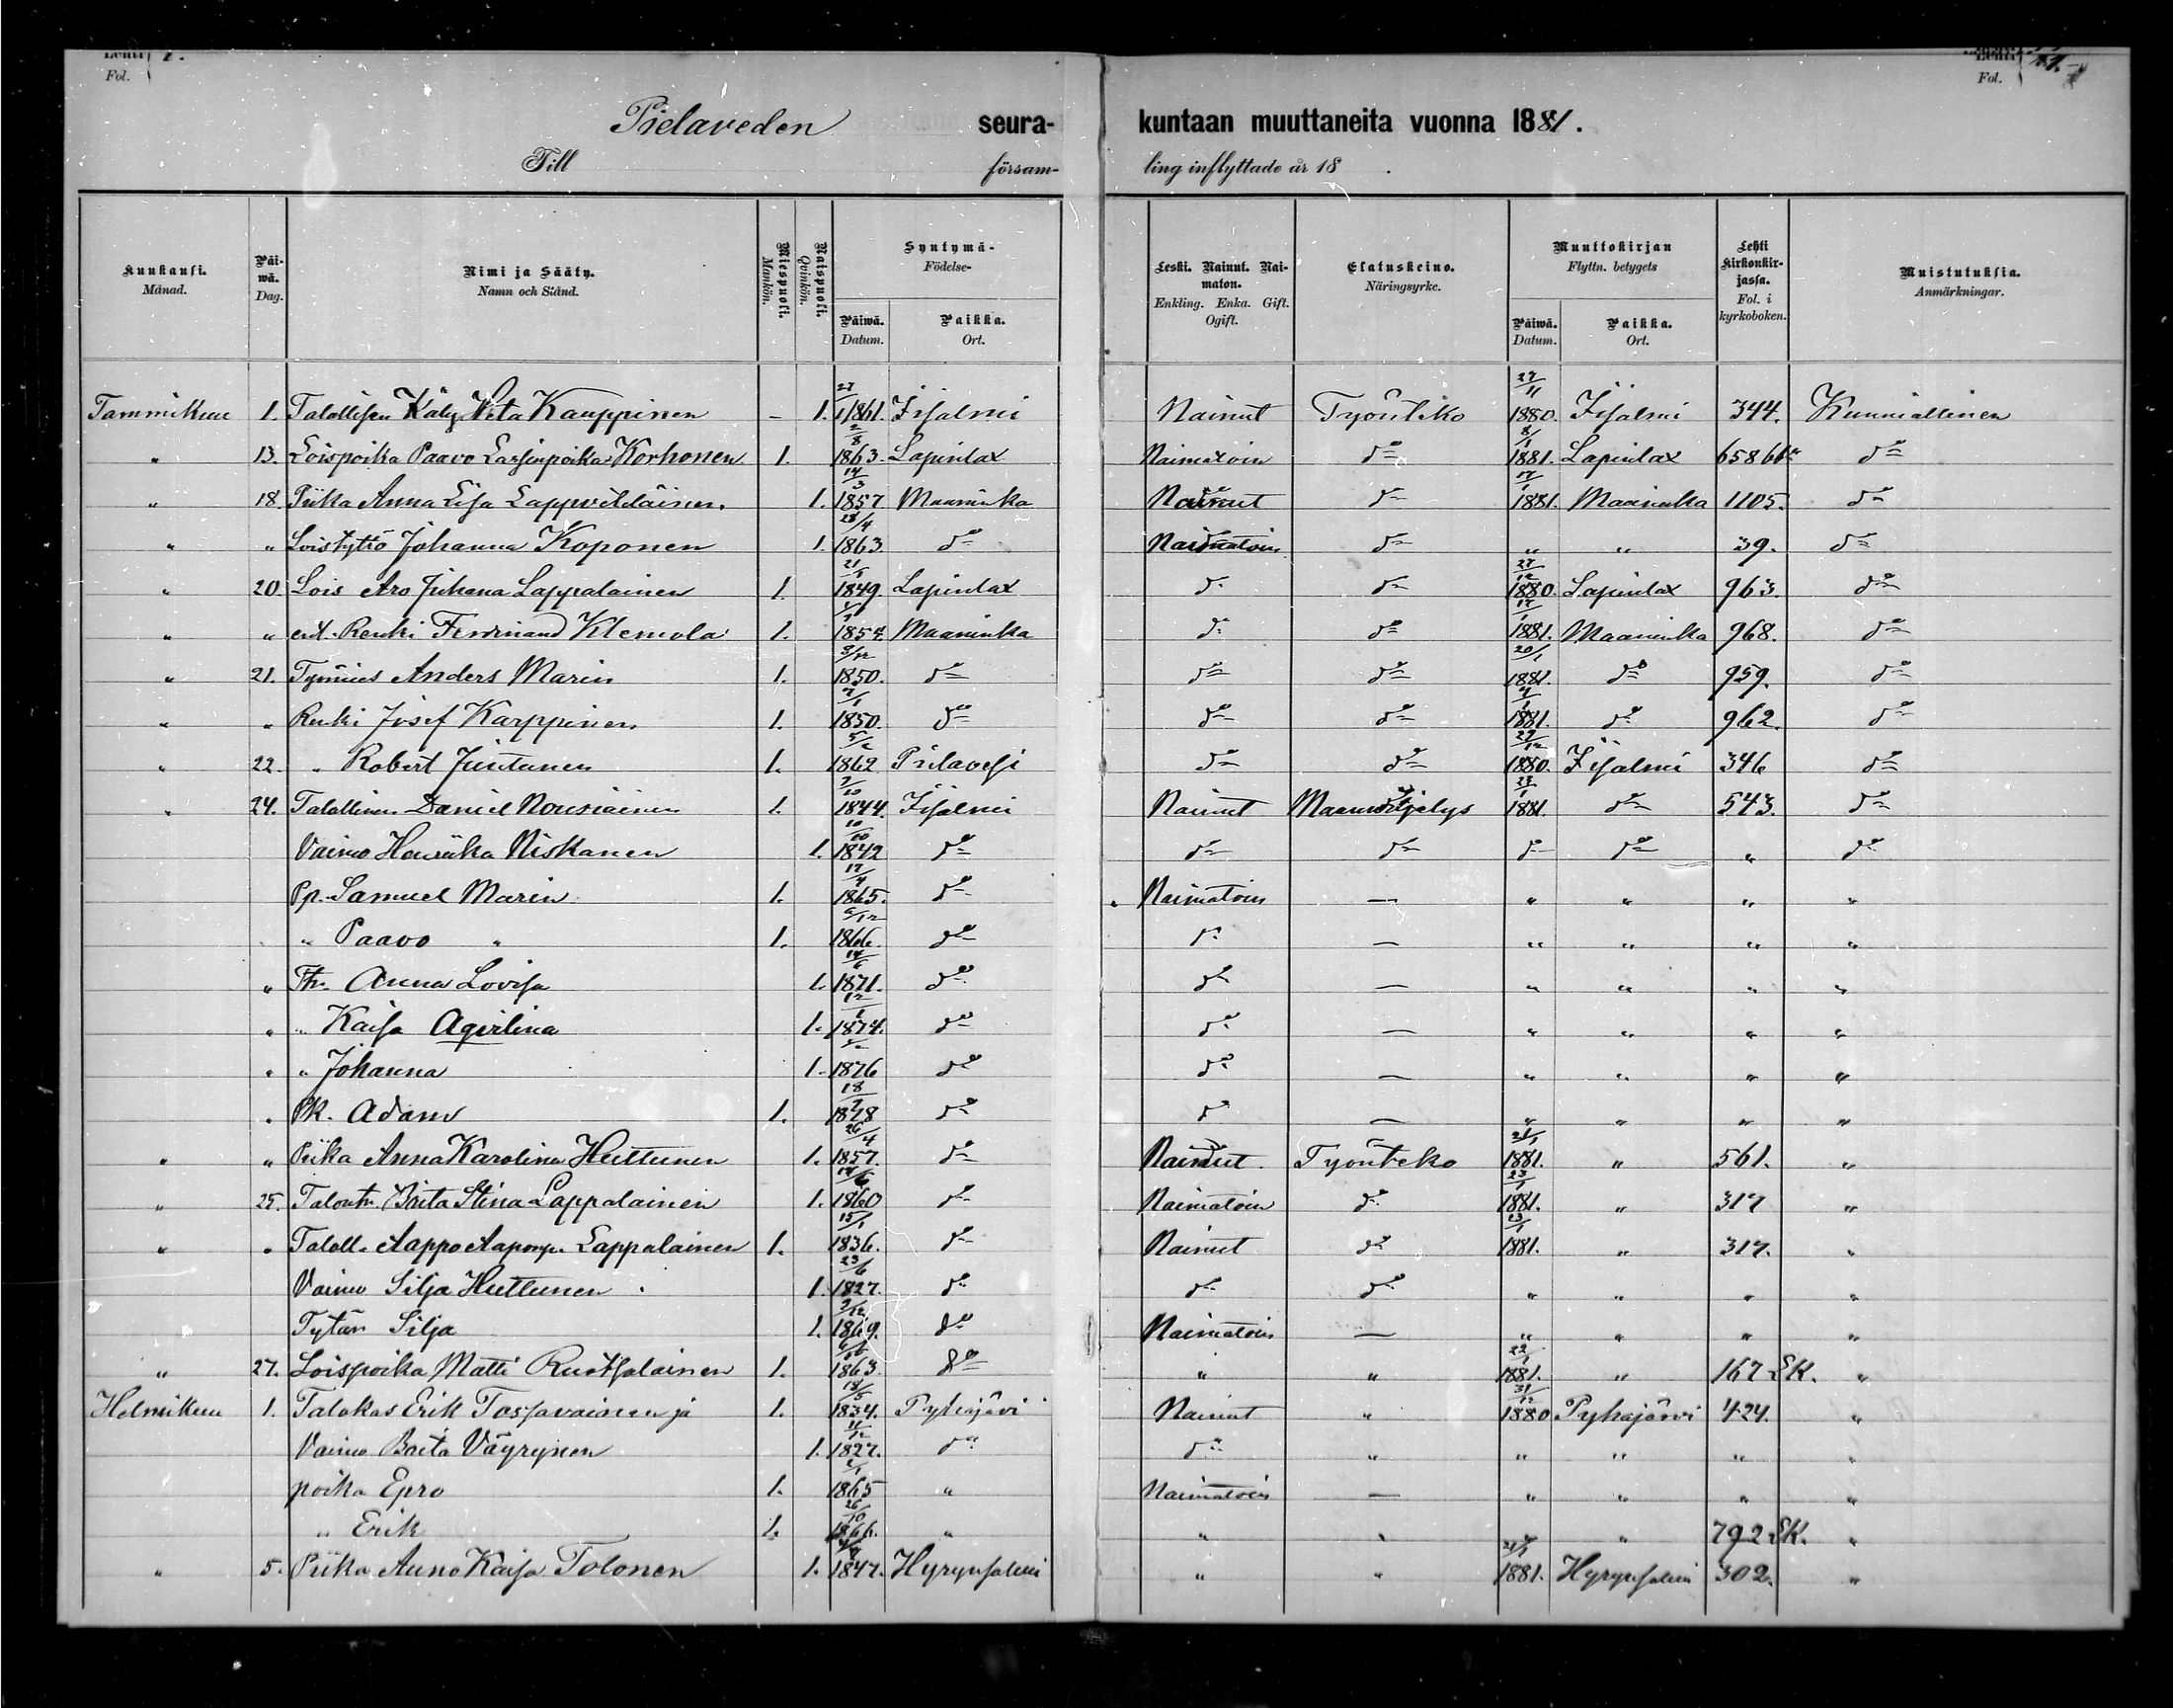 Lehti 1.
Fol.
Lehti
Fol.
Pielaveden seura- kuntaan muuttaneita vuonna 1881.
Till försam- ling inflyttade år 18 .
Kuukausi. Månad. | Päi-wä. Dag. | Nimi ja Sääty. Namn och Stånd. | Miespuoli. Mankön. | Naispuoli. Qvinkön. | Syntymä- Födelse- Päiwä. Datum. | Paikka. Ort. | Leski. Nainut. Nai-maton. Enkling. Enka. Gift. Ogift. | Elatuskeino. Näringsyrke. | Muuttokirjan Flyttn. betygets Päiwä. Datum. | Paikka. Ort. | Lehti Kirkonkir-jassa. Fol. i kyrkoboken. | Muistutuksia. Anmärkningar.
Tammikuu 1. Talollisen Käly Kauppinen – 1. 27/1 1861. Iisalmi Nainut Työnteko 27/11 1880. Iisalmi 344. Kunniallinen
" 13. Loispoika Paavo Lassinpoika Korhonen 1. 2/8 1863. Lapinlax Naimatoin do 8/1 1881. Lapinlax 658 do
" 18. Piika Anna Lisa Lappveteläinen. 1. 14/3 1857 Maaninka Nainut do 17/1 1881. Maaninka 1105. do
" " Loistyttö Johanna Koponen 1. 28/4 1863. do Naimatoin do " " 39. do
" 20. Lois Aro Juhana Lappalainen 1. 21/1 1849. Lapinlax do do 27/12 1880. Lapinlax 963. do
" " Renki Ferdinand Klemola 1. 1854. Maaninka do do 17/1 1881. Maaninka 968. do
" 21. Työmies Anders Marin 1. 9/12 1850. do do do 20/1 1881. do 959. do
" " Renki Josef Karppinen 1. 7/1 1850. do do do 1881. do 962. do
" 22. " Robert Juntunen 1. 1862 Pielavesi do do 29/12 1880. Iisalmi 346 do
" 24. Talollinen Daniel Nousiainen 1. 7/10 1844. Iisalmi Nainut Maanviljelys 23/1 1881. do 543. do
Vaimo Henriika Niskanen 1. 10/10 1842 do do do do do " do
Pp. Samuel Marin 1. 17/4 1865. do Naimatoin — " " " "
" Paavo " 1. 6/12 1866. do do — " " " "
" Tr. Anna Lovisa 1. 14/6 1871. do do — " " " "
" " Kaisa Aqvilina 1. 1874. do do — " " " "
" " Johanna 1. 1876 do do — " " " "
" Pk. Adam 1. 1878 do do — " " " "
" " Piika Anna Karolina Huttunen 1. 26/4 1857. do Nainut Työnteko 21/1 1881. " 561. "
" 25. Talontr. Beita Stina Lappalainen 1. 14/6 1860 do Naimatoin do 23/1 1881. " 317 "
" " Taloll. Aappo Aaponp. Lappalainen 1. 15/1 1836. do Nainut do 23/1 1881. " 317. "
Vaimo Silja Huttunen 1. 23/6 1827. do do do " " " "
Tytär Silja 1. 1869. do Naimatoin — " " " "
" 27. Loispoika Matti Ruotsalainen 1. 1863. do " " 22/1 1881. " 167 EK. "
Helmikuu 1. Talokas Erik Tossavainen ja 1. 18/5 1834. Pyhäjärvi Nainut " 31/12 1880 Pyhäjärvi 424. "
Vaimo Beata Väyrynen 1. 11/12 1827. do do " " " " "
poika Epro 1. 2/1 1865 " Naimatoin — " " " "
" Erik 1. 26/10 1866. " " " " " 792 EK. "
" 5. Piika Anna Kaisa Tolonen 1. 1847. Hyrynsalmi " " 21/1 1881. Hyrynsalmi 302. "